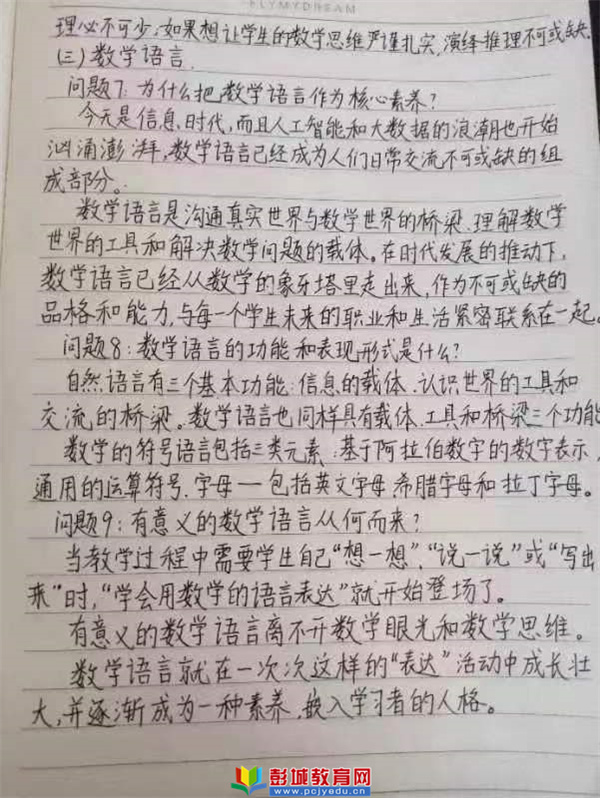 FLYMYDREAM
理必不可少;如果想让学生的数学思维严谨扎实,演绎推理不可或缺.
(三)数学语言.
问题7:为什么把数学语言作为核心素养?
今天是信息时代,而且人工智能和大数据的浪潮也开始
汹涌澎湃,数学语言已经成为人们日常交流不可或缺的组
成部分。
数学语言是沟通真实世界与数学世界的桥梁、理解数学
世界的工具和解决数学问题的载体。在时代发展的推动下,
数学语言已经从数学的象牙塔里走出来,作为不可或缺的
品格和能力,与每一个学生未来的职业和生活紧密联系在一起。
问题8:数学语言的功能和表现形式是什么?
自然语言有三个基本功能:信息的载体、认识世界的工具和
交流的桥梁。数学语言也同样具有载体、工具和桥梁三个功能
数学的符号语言包括三类元素:基于阿拉伯数字的数字表示,
通用的运算符号.字母—包括英文字母、希腊字母和拉丁字母。
问题9:有意义的数学语言从何而来?
当教学过程中需要学生自己“想一想”,“说一说”或“写出
来”时,“学会用数学的语言表达”就开始登场了。
有意义的数学语言离不开数学眼光和数学思维。
数学语言就在一次次这样的“表达”活动中成长壮
大,并逐渐成为一种素养,嵌入学习者的人格。
彭城教育网
www.pcjyedu.cn